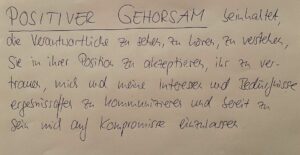 POSITIVER GEHORSAM beinhaltet,
die Verantwortliche zu sehen, zu hören, zu verstehen,
sie in ihrer Position zu akzeptieren, ihr zu ver-
trauen, mich und meine Interessen und Bedürfnisse
ergebnisoffen zu kommunizieren und bereit zu
sein mich auf Kompromisse einzulassen